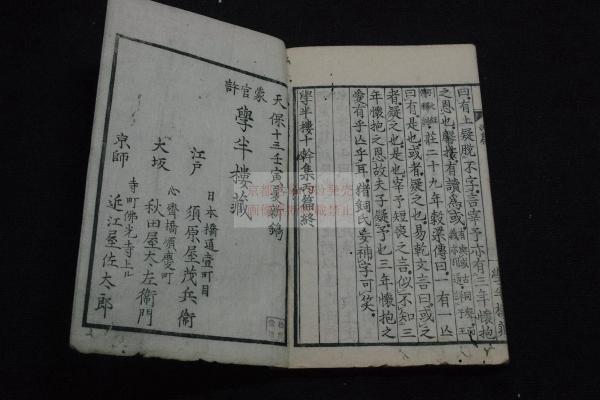 曰有上疑脫不字言宰予亦有三年懷抱
之恩也
莊二十九年穀梁傳曰一有一亡
曰有是也或者疑之也易乾文言曰或之
者疑之也是也宰予短喪之言似不知三
年懷抱之恩故夫子疑予也亡三年懷抱之
愛有乎亡乎耳
妄補字可笑
學半樓十幹集丙篇終
天保十三壬寅夏新鐫
蒙官許
學半樓藏
江戶
日本橋通壹町目
須原屋茂兵衞
大坂
心齋橋順慶町
秋田屋太左衞門
京師
寺町佛光寺上ル
近江屋佐太郎